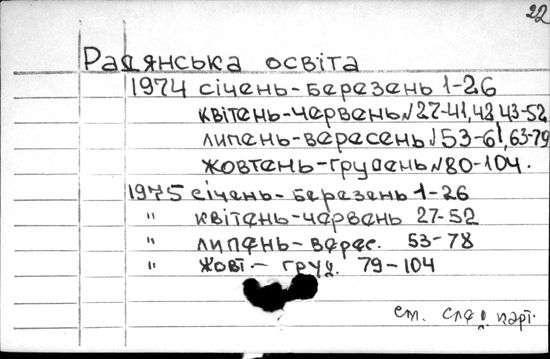 22
Радянська освіта
1974 січень-березень 1-26
квітень-червень №27-41,42,43-52
липень-вересень №53-61,63-79
жовтень-грудень №80-104.
1975 січень-березень 1-26
" квітень-червень 27-52
" липень-верес. 53-78
" жовт.- груд. 79-104
см. след карт.